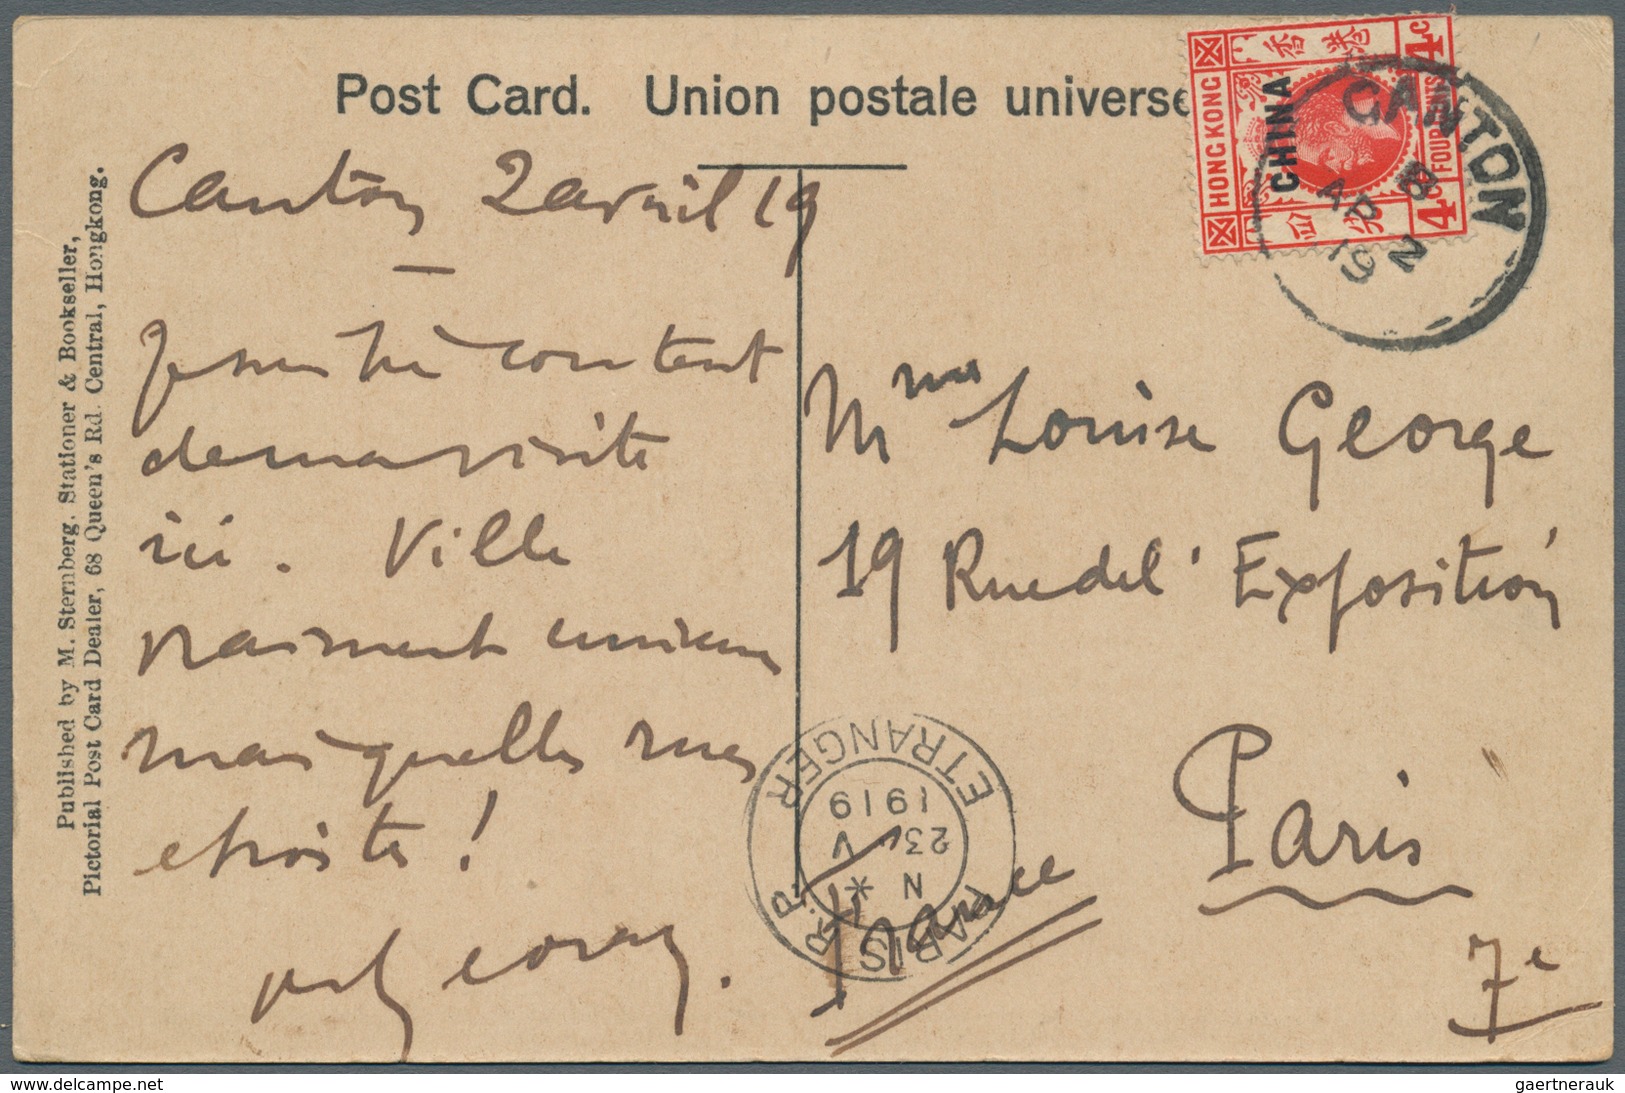 Post Card. Union postale universe
香港
HONG KONG
CHINA
FOUR CENTS
4c
4c
四
CANTON
B
AP 2
19
Published by M. Sternberg, Stationer & Bookseller,
Pictorial Post Card Dealer, 68 Queen's Rd. Central, Hongkong.
Canton 2 avril 19
Je suis très content
de ma visite
ici. Ville
vraiment curieuse
mais quelles rues
etroites !
Mme Louise George
19 Rue de l'Exposition
Paris
7e
France
PARIS R.P.
ETRANGER
N *
23 V
1919
gaertnerauk